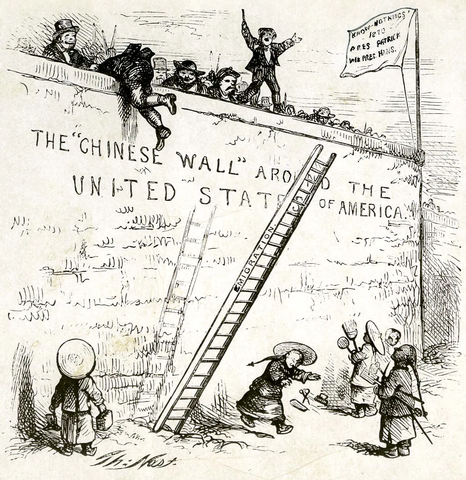 "KNOW-NOTHINGS"
1870
PRES PATRICK
PRES HANS.
THE "CHINESE WALL" AROUND THE
UNITED STATES OF AMERICA.
EMIGRATION
Th: Nast.